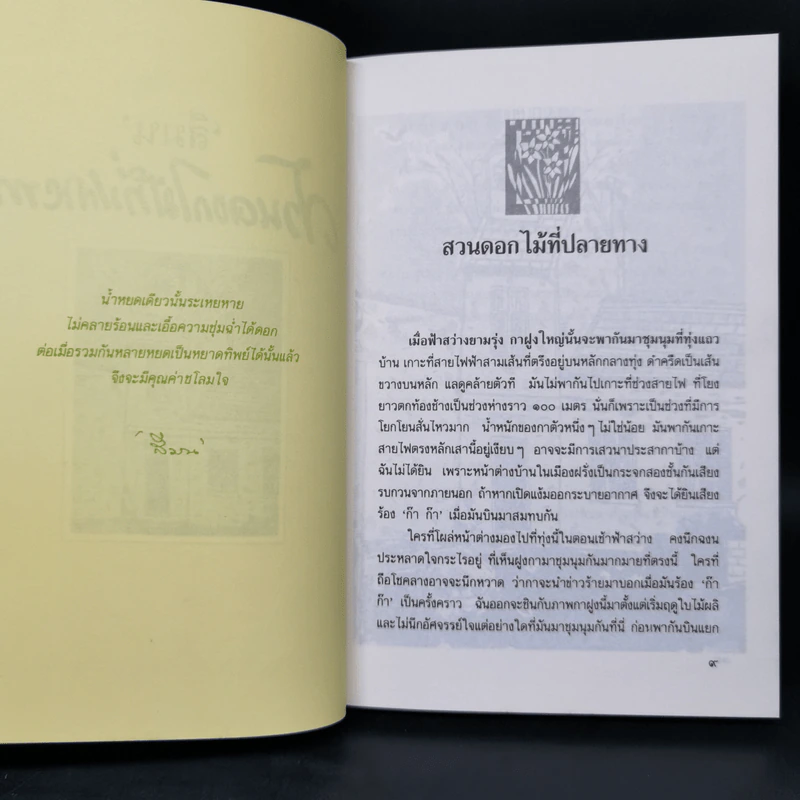 น้ำหยดเดียวนั้นระเหยหาย
ไม่คลายร้อนและเอื้อความชุ่มฉ่ำได้ดอก
ต่อเมื่อรวมกันหลายหยดเป็นหยาดทิพย์ได้นั้นแล้ว
จึงจะมีคุณค่าชโลมใจ
'สีมน'
สวนดอกไม้ที่ปลายทาง
เมื่อฟ้าสว่างยามรุ่ง กาฝูงใหญ่นั้นจะพากันมาชุมนุมที่ทุ่งแถว
บ้าน เกาะที่สายไฟฟ้าสามเส้นที่ตรึงอยู่บนหลักกลางทุ่ง ดำครืดเป็นเส้น
ขวางบนหลัก แลดูคล้ายตัวที มันไม่พากันไปเกาะที่ช่วงสายไฟ ที่โยง
ยาวตกท้องช้างเป็นช่วงห่างราว ๑๐๐ เมตร นั่นก็เพราะเป็นช่วงที่มีการ
โยกโยนสั่นไหวมาก น้ำหนักของกาตัวหนึ่งๆ ไม่ใช่น้อย มันพากันเกาะ
สายไฟตรงหลักเสานี้อยู่เงียบๆ อาจจะมีการเสวนาประสากาบ้าง แต่
ฉันไม่ได้ยิน เพราะหน้าต่างบ้านในเมืองฝรั่งเป็นกระจกสองชั้นกันเสียง
รบกวนจากภายนอก ถ้าหากเปิดแง้มออกระบายอากาศ จึงจะได้ยินเสียง
ร้อง 'ก๊า ก๊า' เมื่อมันบินมาสมทบกัน
ใครที่โผล่หน้าต่างมองไปที่ทุ่งนี้ในตอนเช้าฟ้าสว่าง คงนึกฉงน
ประหลาดใจกระไรอยู่ ที่เห็นฝูงกามาชุมนุมกันมากมายที่ตรงนี้ ใครที่
ถือโชคลางอาจจะนึกหวาด ว่ากาจะนำข่าวร้ายมาบอกเมื่อมันร้อง 'ก๊า
ก๊า' เป็นครั้งคราว ฉันออกจะชินกับภาพกาฝูงนี้มาตั้งแต่เริ่มฤดูใบไม้ผลิ
และไม่นึกอัศจรรย์ใจแต่อย่างใดที่มันมาชุมนุมกันที่นี่ ก่อนพากันบินแยก
๙